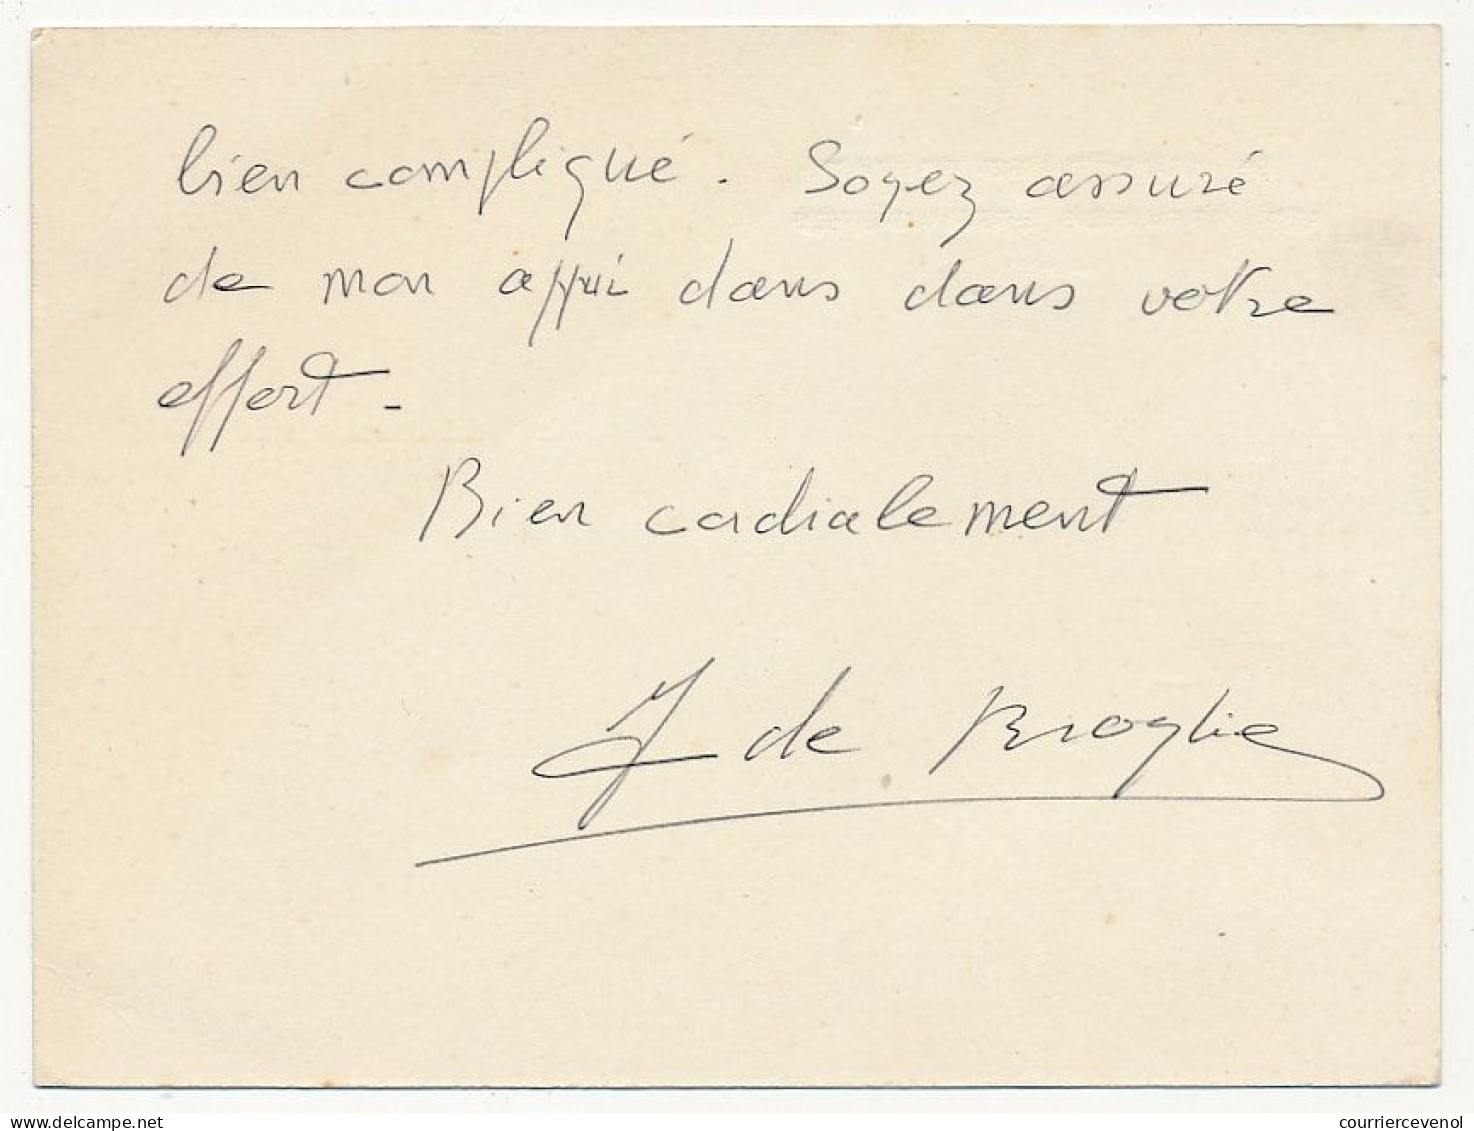 bien compliqué. Soyez assuré
de mon appui dans dans votre
effort.
Bien cordialement
J de Broglie
www.delcampe.net
courriercevenol